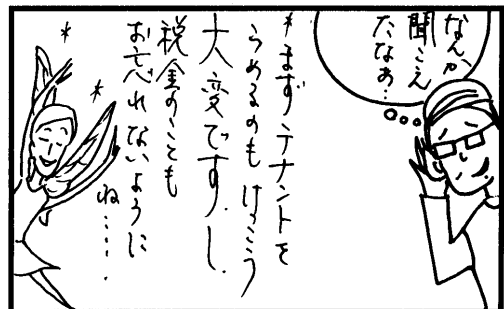 なんか
聞こえ
たなあ…
*まずテナントを
うめるのもけっこう
大変ですし、
税金のことも
お忘れないように
ね……．